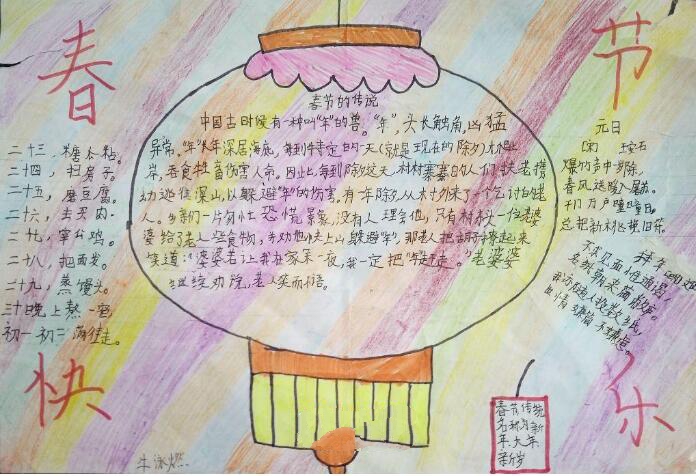 春
节
快
乐
春节的传说
中国古时候有一种叫“年”的兽。“年”,头长触角,凶猛
异常。“年”长年深居海底,每到特定的一天(就是现在的除夕)才爬上
岸,吞食牲畜伤害人命。因此,每到除夕这天,村村寨寨的人们扶老携
幼逃往深山,以躲避“年”的伤害,有一年除夕,从村外来了个乞讨的老
人。乡亲们一片匆忙恐慌景象,没有人理会他,只有村头一位老婆
婆给了老人些食物,并劝他快上山躲避“年”,那老人把胡子撩起来
笑道:“婆婆若让我在家呆一夜,我一定把“年”赶走。”老婆婆
继续劝说,老人笑而不语。
二十三,糖瓜粘。
二十四,扫房子。
二十五,磨豆腐。
二十六,去买肉。
二十七,宰公鸡。
二十八,把面发。
二十九,蒸馒头。
三十晚上熬一宿
初一初二满街走。
元日
(宋) 王安石
爆竹声中一岁除,
春风送暖入屠苏。
千门万户曈曈日,
总把新桃换旧符。
拜年 (明)
不求见面惟通谒,
名纸朝来满敝庐。
我亦随人投数纸,
世情嫌简不嫌虚。
春节传统
名称为新
年、大年、
新岁